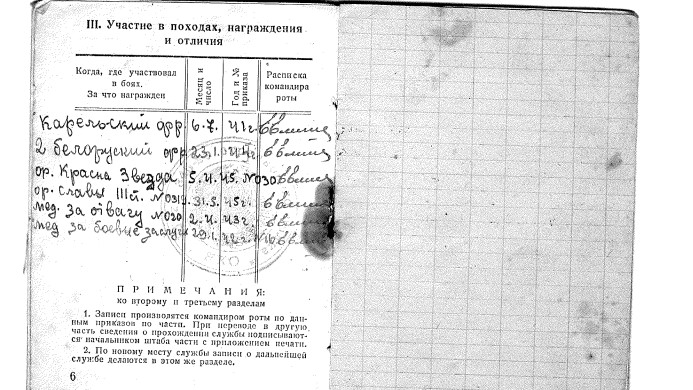 III. Участие в походах, награждения
и отличия
Когда, где участвовал
в боях.
За что награжден
Месяц и
число
Год и №
приказа
Расписка
командира
роты
Карельский фр 6.7. 41г.
2 белоруский фр 23.1. 44г.
ор. Красна Звезда 5.4. 45. №030
ор. Славы III й. 31.5. 45г.
мед. За отвагу №030 2.4. 43г.
мед за боевые заслуги 42г.
ПРИМЕЧАНИЯ:
ко второму и третьему разделам
1. Записи производятся командиром роты по дан-
ным приказов по части. При переводе в другую
часть сведения о прохождении службы подписывают-
ся начальником штаба части с приложением печати.
2. По новому месту службы записи о дальнейшей
службе делаются в этом же разделе.
6